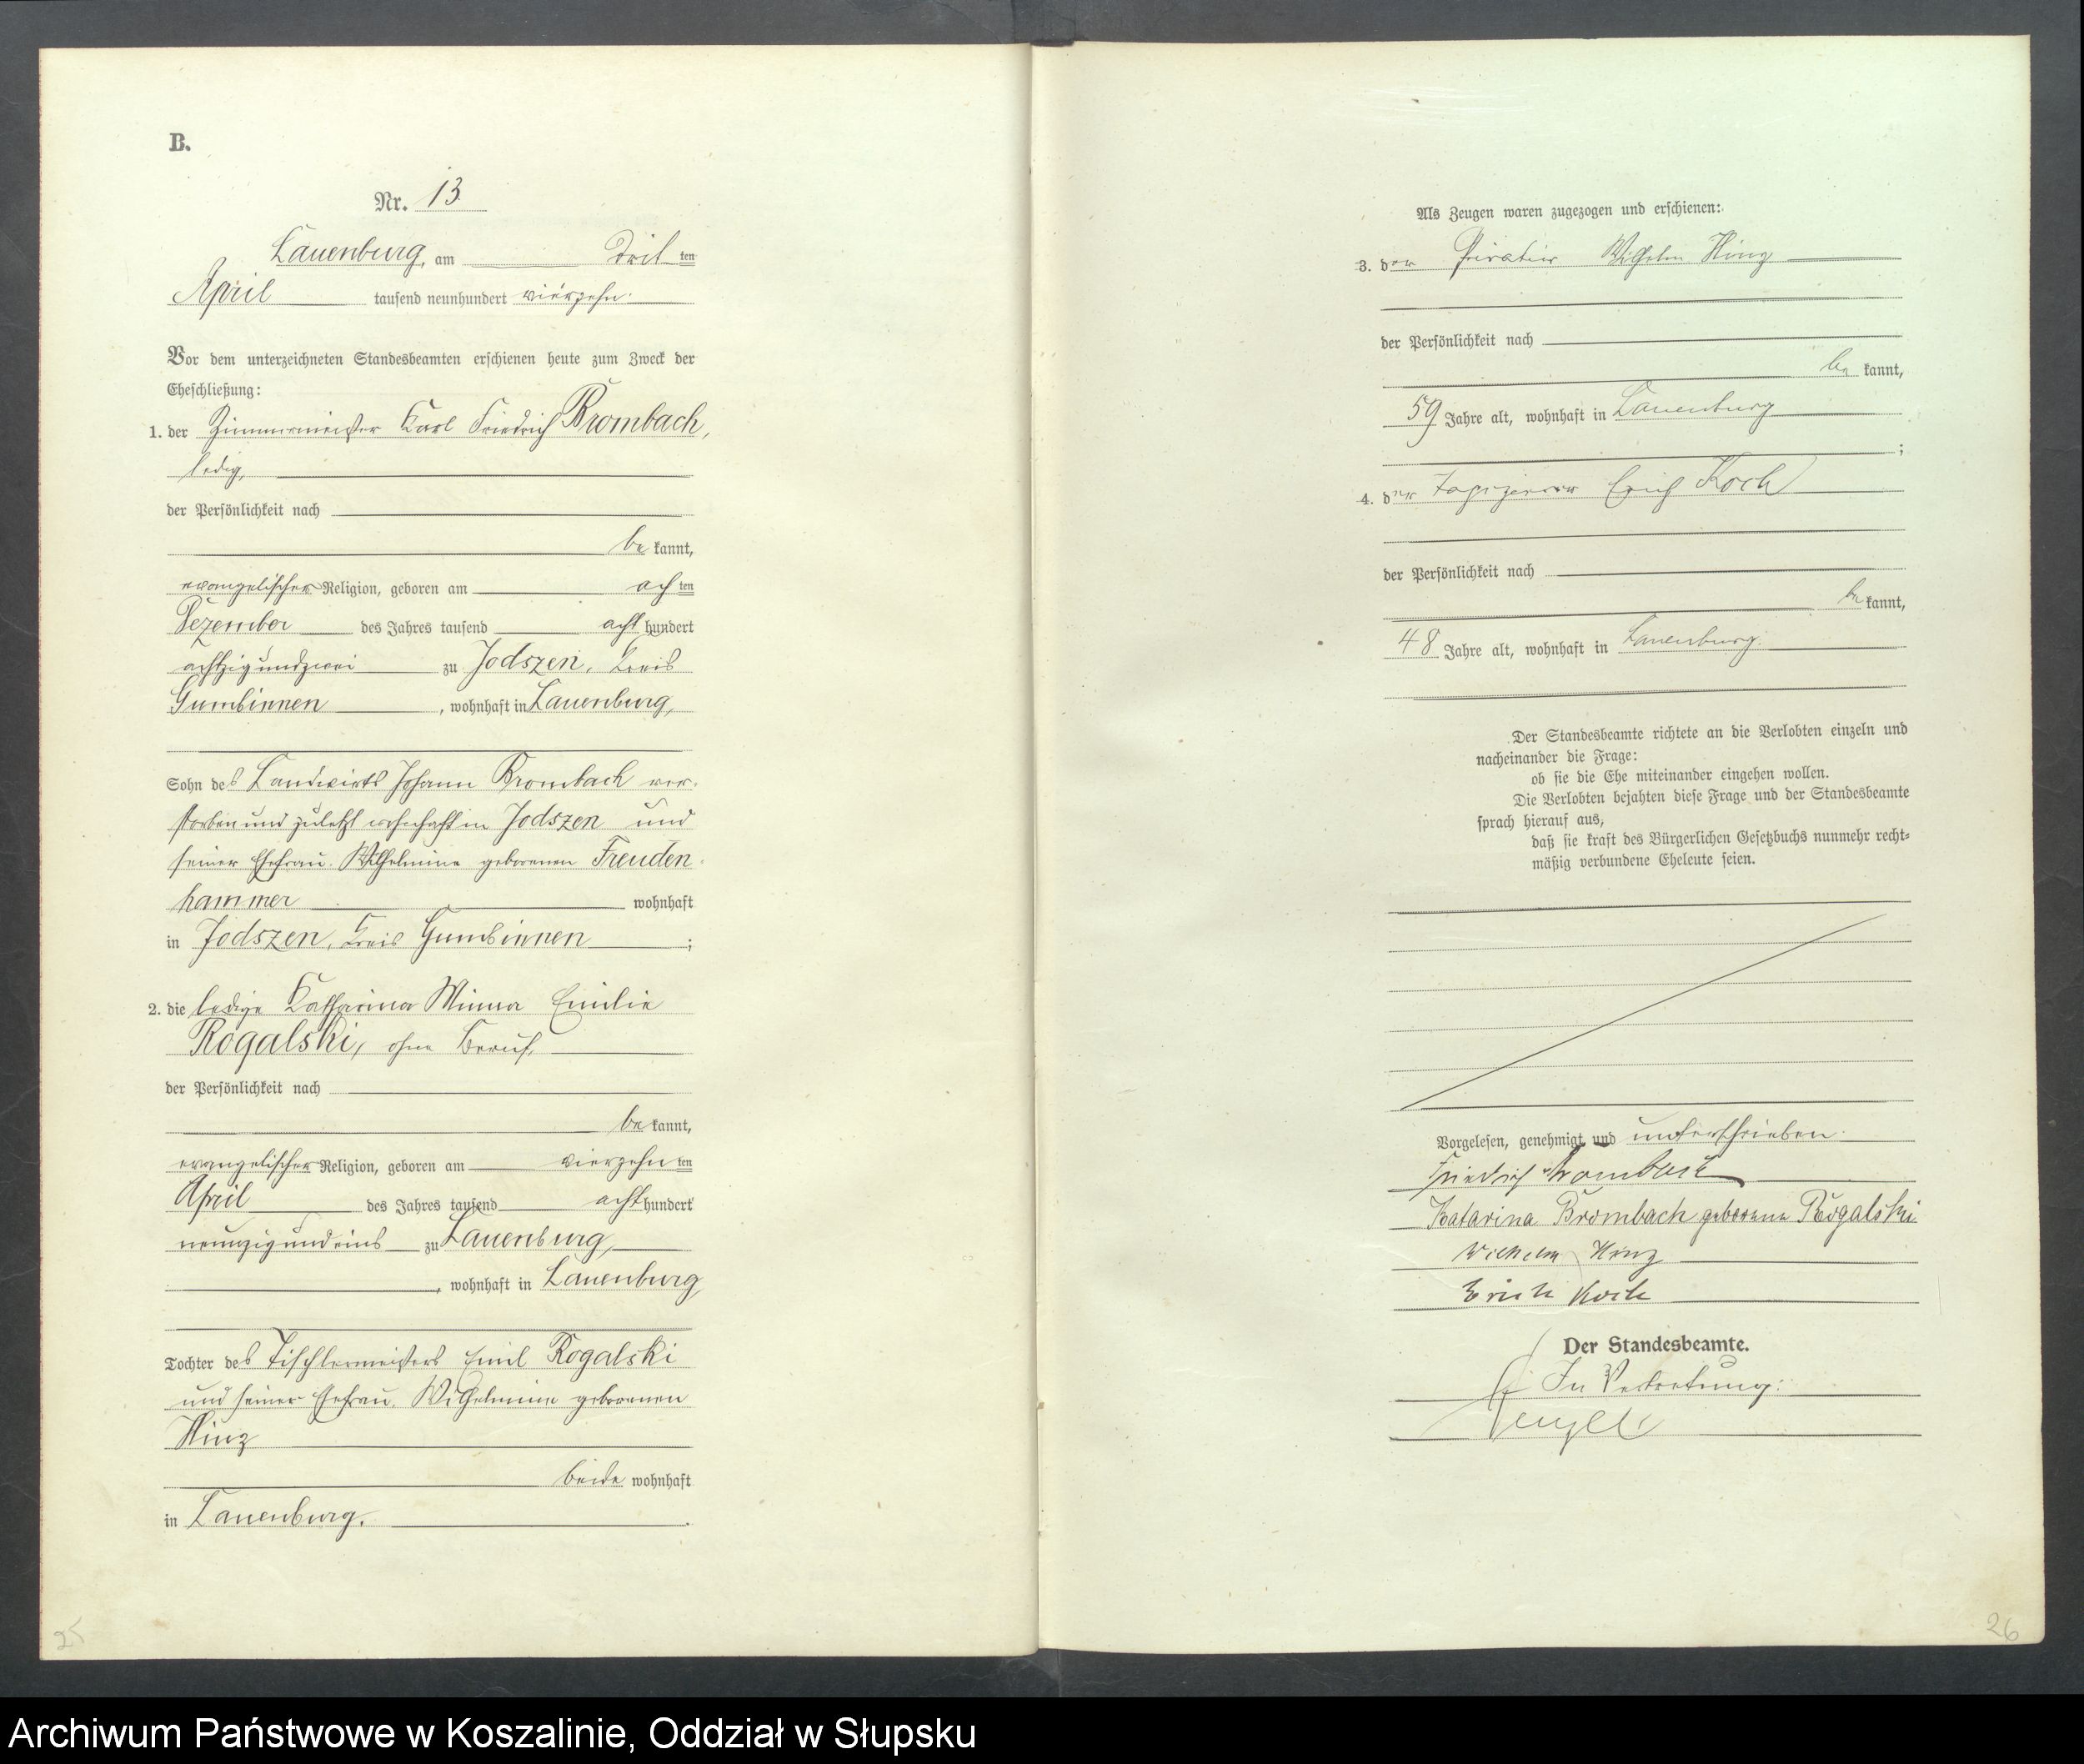 B.
Nr. 13.
Lauenburg, am drit ten
April tausend neunhundert vierzehn.
Vor dem unterzeichneten Standesbeamten erschienen heute zum Zweck der
Eheschließung:
1. der Zimmermeister Karl Friedrich Brombach,
ledig,
der Persönlichkeit nach
be kannt,
evangelischer Religion, geboren am ach ten
Dezember des Jahres tausend acht hundert
achtzigundzwei zu Jodszen, Kreis
Gumbinnen, wohnhaft in Lauenburg,
Sohn des Landwirts Johann Brombach ver-
storben und zuletzt wohnhaft in Jodszen und
seiner Ehefrau Wilhelmine geborenen Freuden-
hammer wohnhaft
in Jodszen, Kreis Gumbinnen;
2. die ledige Katharina Minna Emilie
Rogalski, ohne Beruf,
der Persönlichkeit nach
be kannt,
evangelischer Religion, geboren am vierzehn ten
April des Jahres tausend acht hundert
neunzigundeins zu Lauenburg,
, wohnhaft in Lauenburg,
Tochter des Tischlermeisters Emil Rogalski
und seiner Ehefrau, Wilhelmine geborenen
Hinz
beide wohnhaft
in Lauenburg.
25
Als Zeugen waren zugezogen und erschienen:
3. der Privatier Wilhelm Hinz
der Persönlichkeit nach
be kannt,
59 Jahre alt, wohnhaft in Lauenburg
;
4. der Tapezierer Erich Koch
der Persönlichkeit nach
be kannt,
48 Jahre alt, wohnhaft in Lauenburg.
Der Standesbeamte richtete an die Verlobten einzeln und
nacheinander die Frage:
ob sie die Ehe miteinander eingehen wollen.
Die Verlobten bejahten diese Frage und der Standesbeamte
sprach hierauf aus,
daß sie kraft des Bürgerlichen Gesetzbuchs nunmehr recht-
mäßig verbundene Eheleute seien.
Vorgelesen, genehmigt und unterschrieben.
Friedrich Brombach
Katarina Brombach geborene Rogalski
Wilhelm Hinz
Erich Koch
Der Standesbeamte.
In Vertretung:
26
Archiwum Państwowe w Koszalinie, Oddział w Słupsku